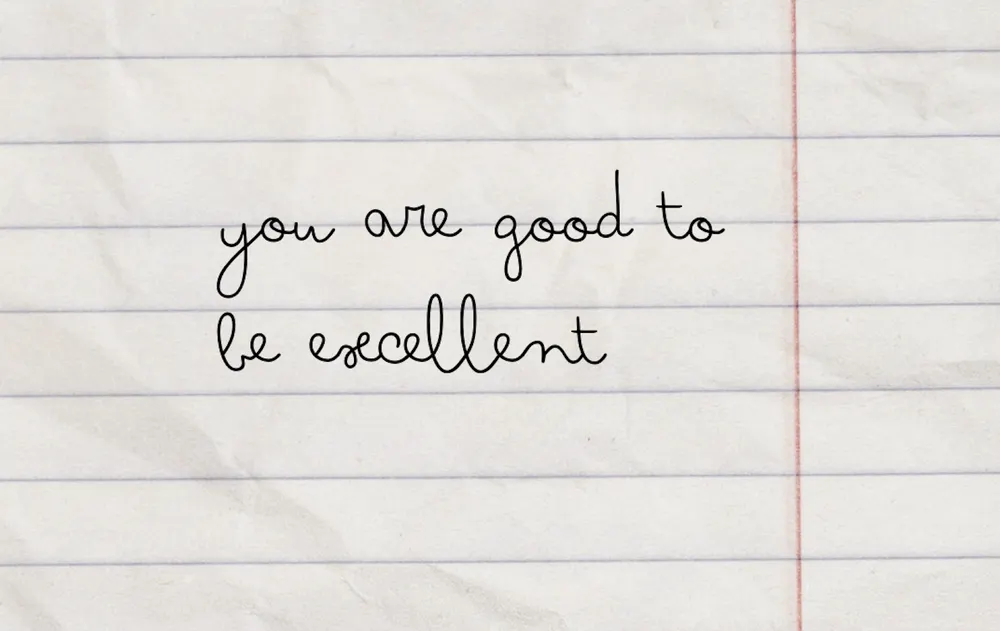 you are good to
be excellent